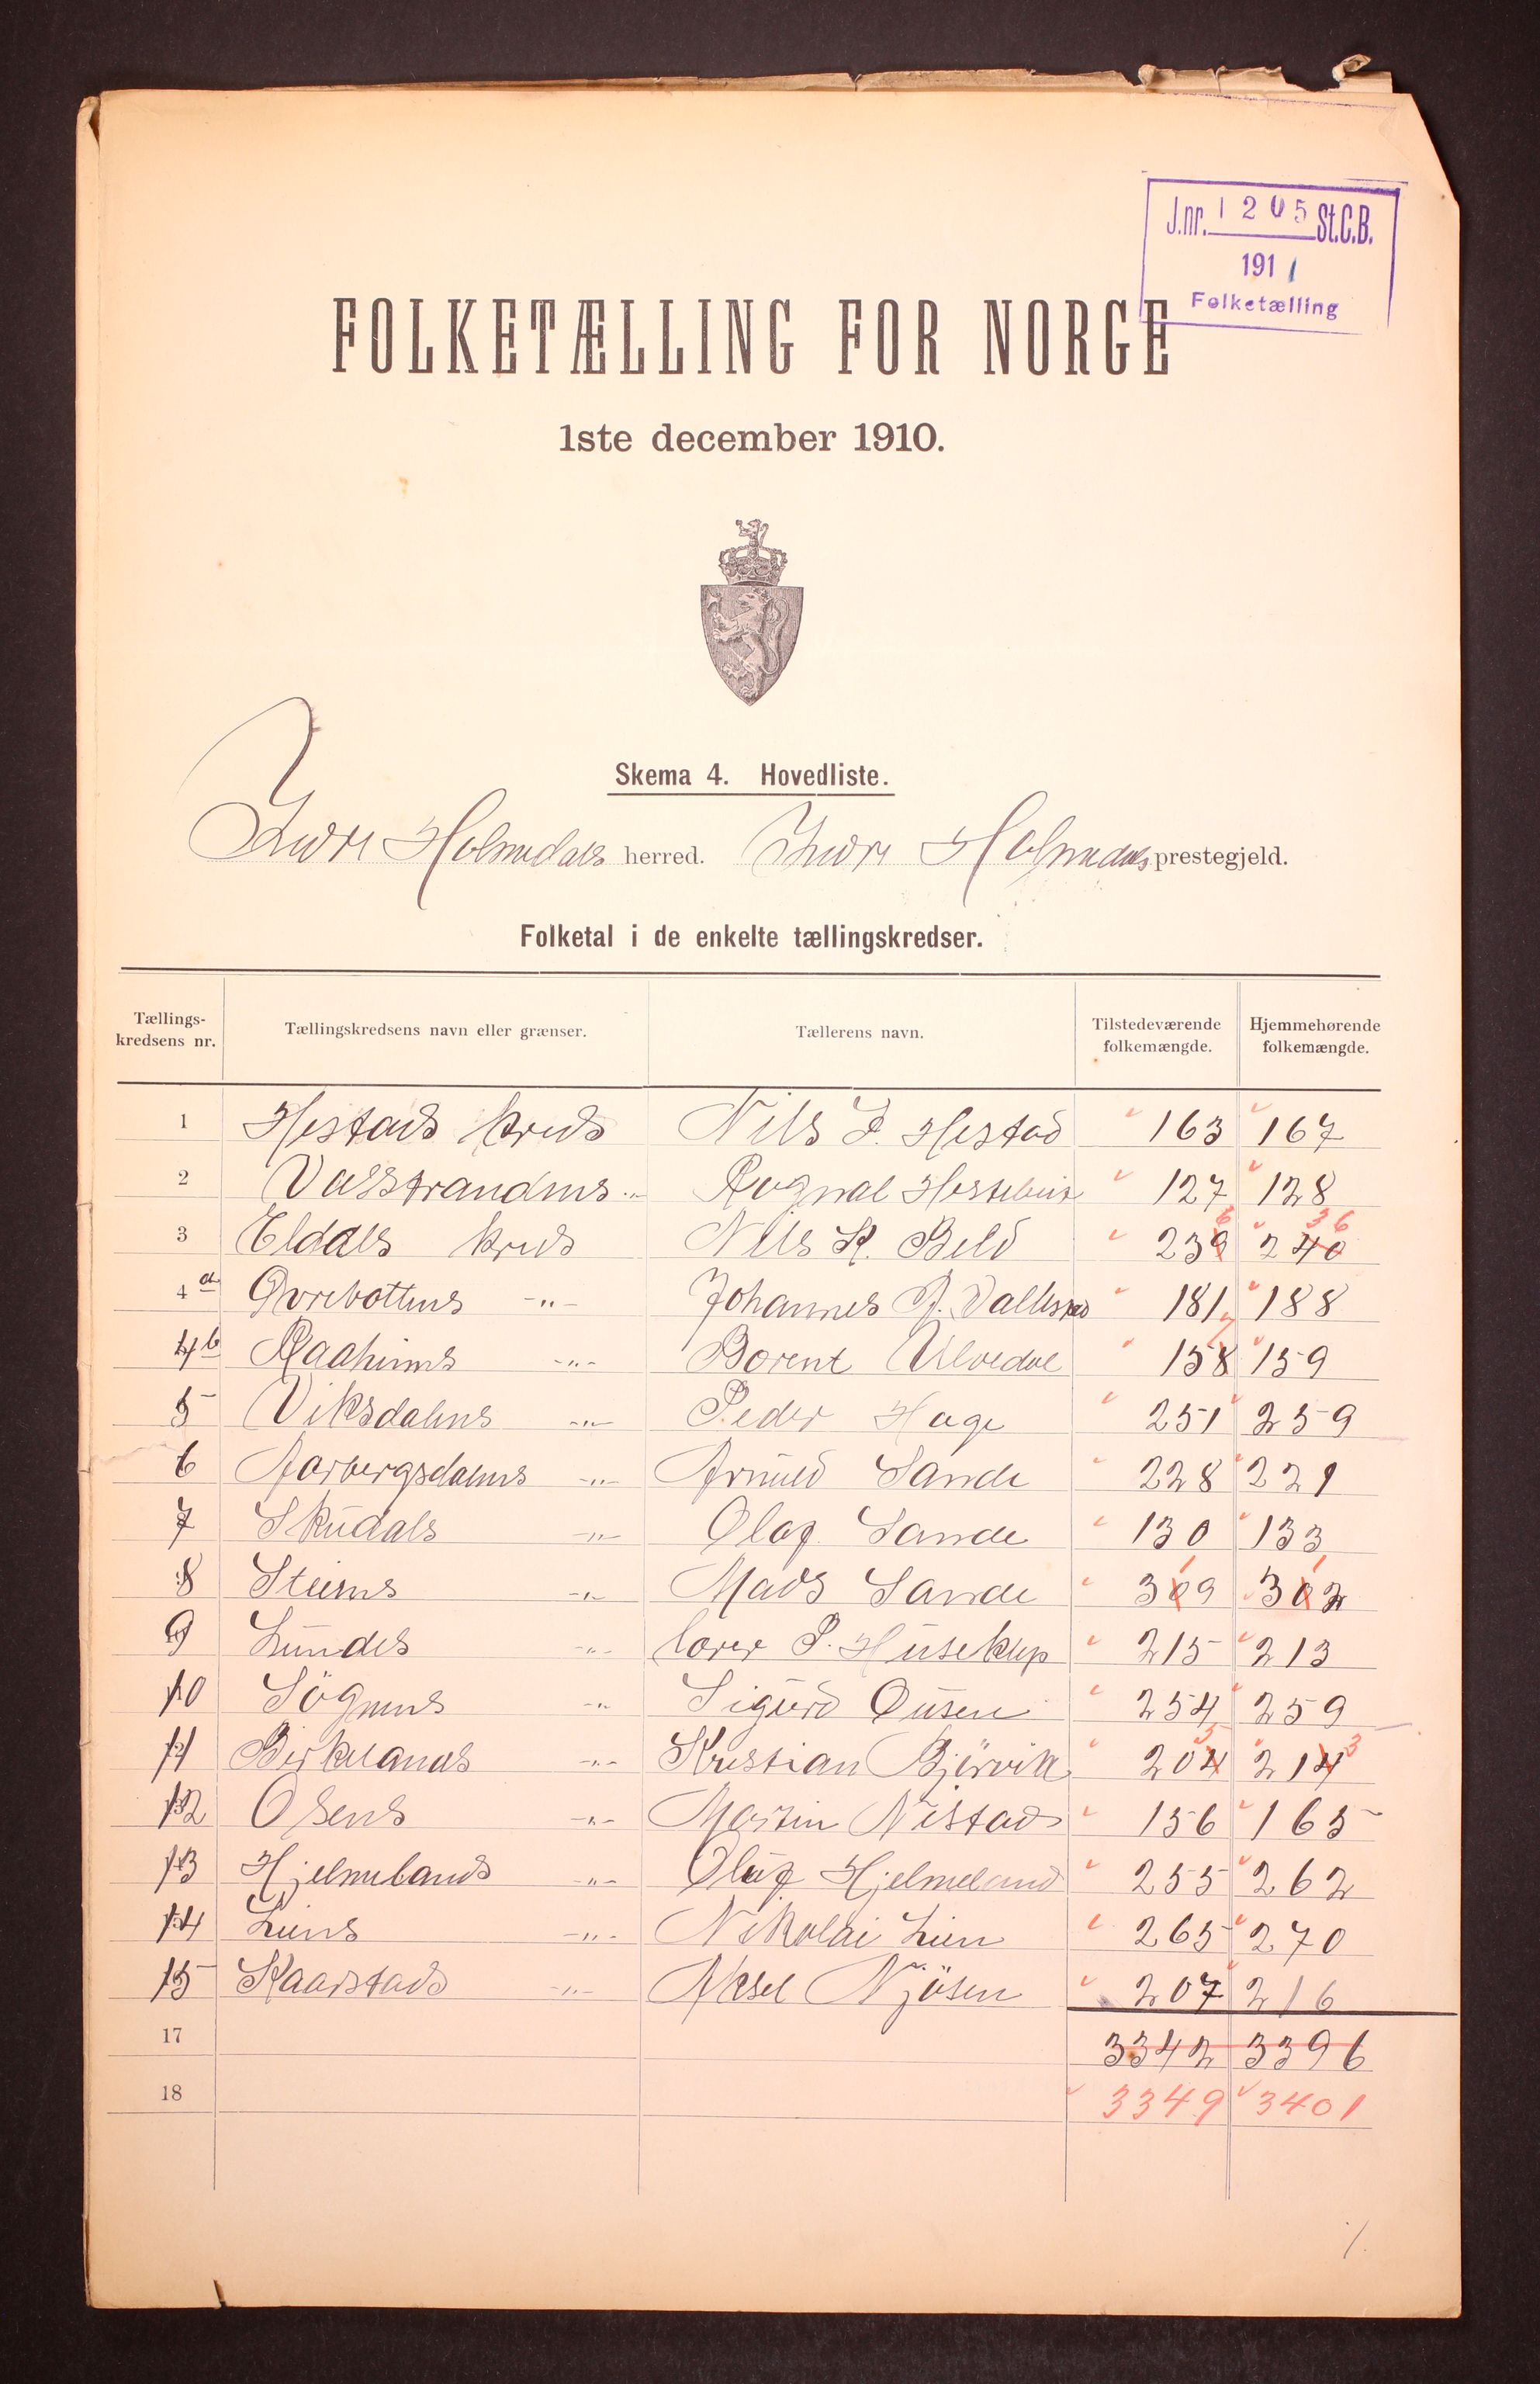 J.nr. 1205 St.C.B.
1911
Folketælling
FOLKETÆLLING FOR NORGE
1ste december 1910.
Skema 4. Hovedliste.
Indre Holmedals herred. Indre Holmedals prestegjeld.
Folketal i de enkelte tællingskredser.
Tællings-kredsens nr. Tællingskredsens navn eller grænser. Tællerens navn. Tilstedeværende folkemængde. Hjemmehørende folkemængde.
1 Hestads kreds Nils I. Hestad 163 167
2 Valstrandens -"- Rognal 127 128
3 Eldals kreds Nils K. Beld 239 6 240 36
4a -"- Johannes 181 188
4b Raaheims -"- Borent Ulvedal 158 7 159
5 Viksdalens -"- Peder Hage 251 259
6 Aarbergsdalens -"- Arnuld Sande 228 221
7 Skudals -"- Olaf Sande 130 133
8 Steiens -"- Mads Sande 309 1 302 1
9 Lundes -"- P. Huseklep 215 213
10 Sögnens -"- Sigurd Ousen 254 259
11 Birkelands -"- Kristian Bjørvik 204 3 214 3
12 Osens -"- Martin Nistad 156 165
13 Hjelmelands -"- Oluf Hjelmeland 255 262
14 Liens -"- Nikolai Lien 265 270
15 Kaarstads -"- Aksel Njösen 207 216
17 3342 3396
18 3349 3401
1.